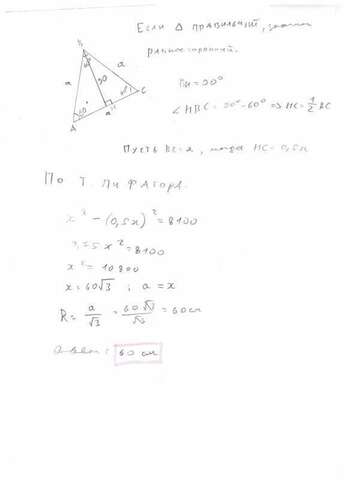 Если Δ правильный, значит
равносторонний.
B
a
90
a
60°
A
a
H
C
∠HBC = 90° - 60° ⇒ HC = 1/2 BC
Пусть BC = x, тогда HC = 0,5x
По Т. Пифагора.
x² - (0,5x)² = 8100
x² = 10 800
x = 60√3 ; a = x
R = a/√3 = 60√3/√3 = 60 см
Ответ: 60 см